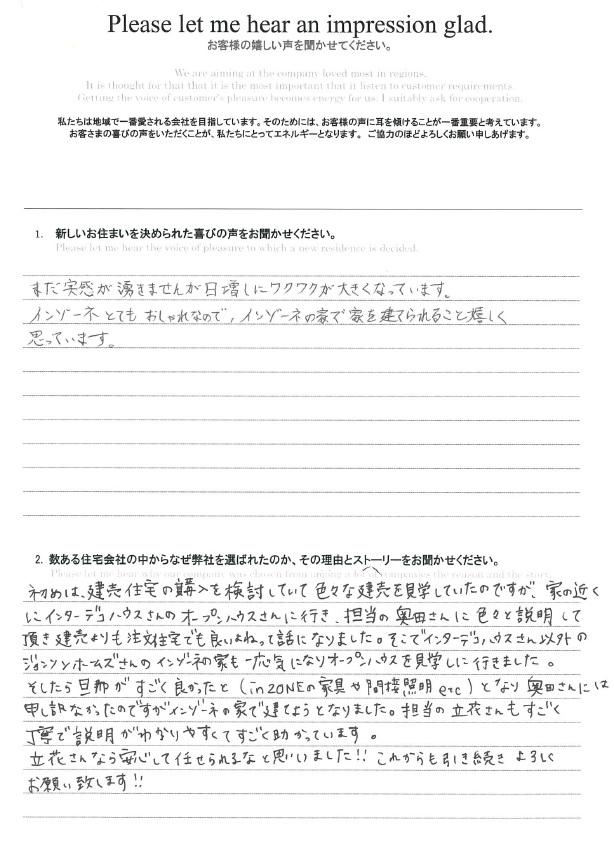 Please let me hear an impression glad.
お客様の嬉しい声を聞かせてください。
We are aiming at the company loved most in regions.
It is thought for that that it is the most important that it listen to customer requirements.
Getting the voice of customer's pleasure becomes energy for us. I suitably ask for cooperation.
私たちは地域で一番愛される会社を目指しています。そのためには、お客様の声に耳を傾けることが一番重要と考えています。
お客さまの喜びの声をいただくことが、私たちにとってエネルギーとなります。 ご協力のほどよろしくお願い申しあげます。
1. 新しいお住まいを決められた喜びの声をお聞かせください。
Please let me hear the voice of pleasure to which a new residence is decided.
まだ実感が湧きませんが日増しにワクワクが大きくなっています。
インゾーネとてもおしゃれなので、インゾーネの家で家を建てられること嬉しく
思っています。
2. 数ある住宅会社の中からなぜ弊社を選ばれたのか、その理由とストーリーをお聞かせください。
Please let me hear why our company was chosen from among a lot of companies the reason and the story.
初めは、建売住宅の購入を検討していて色々な建売を見学していたのですが、家の近く
にインターデコハウスさんのオープンハウスさんに行き、担当の奥田さんに色々と説明して
頂き建売よりも注文住宅でも良いよねって話になりました。そこでインターデコハウスさん以外の
ジョンソンホームズさんのインゾーネの家も一応気になりオープンハウスを見学しに行きました。
そしたら旦那がすごく良かったと(inZONEの家具や間接照明etc)となり奥田さんには
申し訳なかったのですがインゾーネの家で建てようとなりました。担当の立花さんもすごく
丁寧で説明がわかりやすくてすごく助かっています。
立花さんなら安心して任せられるなと思いました!!これからも引き続きよろしく
お願い致します!!